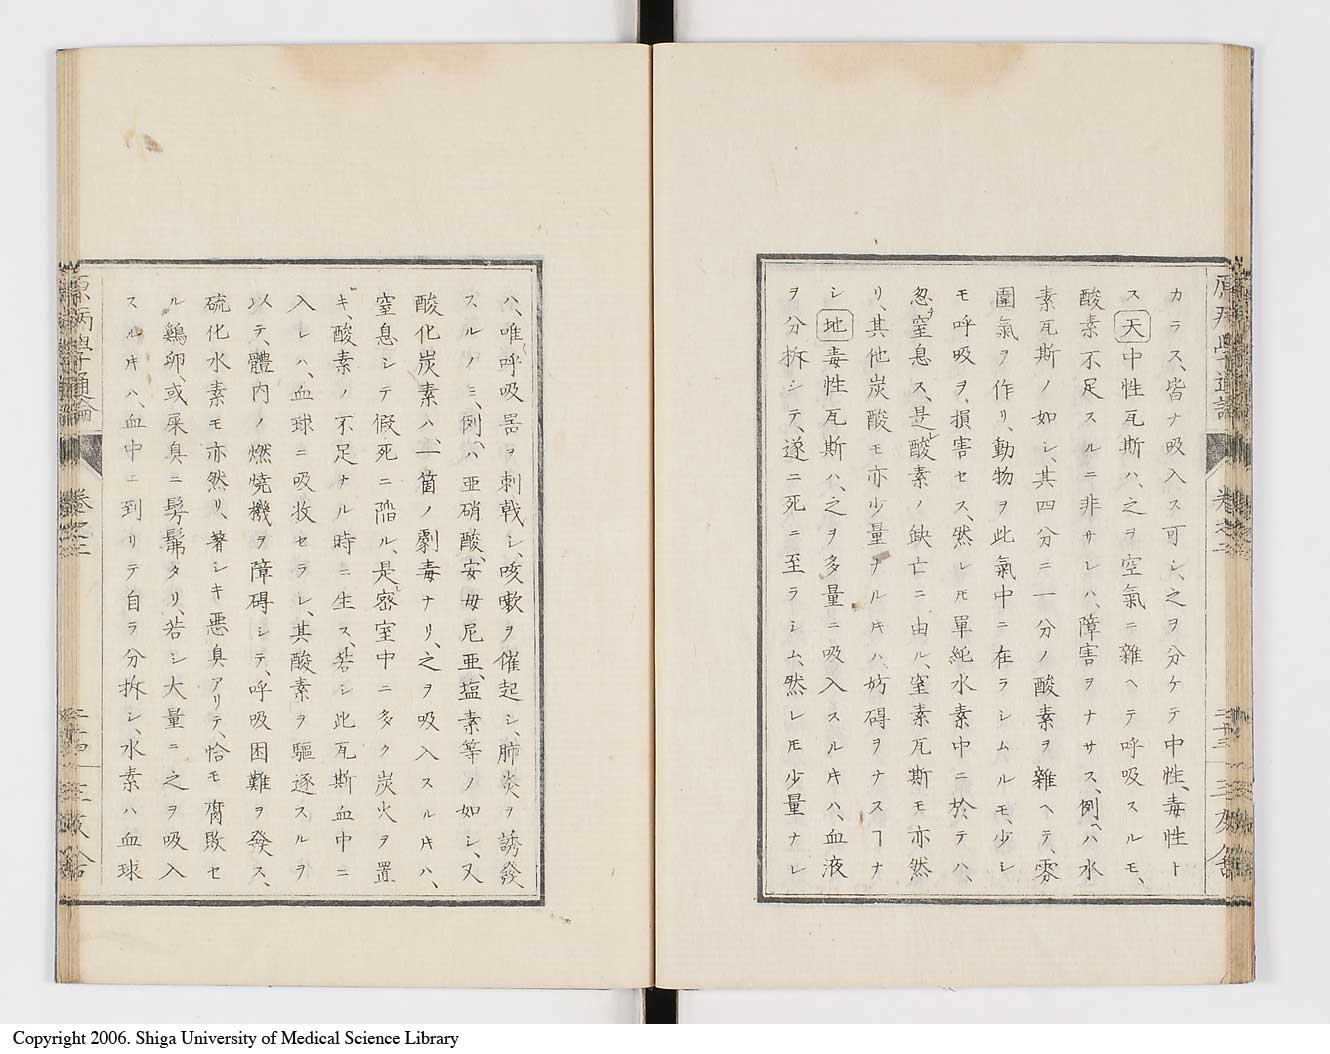 カラス、皆ナ吸入ス可シ、之ヲ分ケテ中性、毒性ト
ス天中性瓦斯ハ、之ヲ空氣ニ雜ヘテ呼吸スルモ、
酸素不足スルニ非サレハ、障害ヲナサス、例ヘハ水
素瓦斯ノ如シ、其四分ニ一分ノ酸素ヲ雜ヘテ、雰
圍氣ヲ作リ、動物ヲ此氣中ニ在ラシムルモ、少シ
モ呼吸ヲ、損害セス、然レ𪜈單純水素中ニ於テハ、
忽チ窒息ス、是レ酸素ノ缺亡ニ由ル、窒素瓦斯モ亦然
リ、其他炭酸モ亦少量ナル𪜈ハ、妨碍ヲナスヿナ
シ地毒性瓦斯ハ、之ヲ多量ニ吸入スル𪜈ハ、血液
ヲ分拆シテ、遂ニ死ニ至ラシム、然レ𪜈少量ナレ
ハ、唯呼吸噐ヲ刺戟シ、咳嗽ヲ催起シ、肺炎ヲ誘發
スルノミ、例ヘハ亜硝酸、安母尼亜、塩素等ノ如シ、又
酸化炭素ハ、一箇ノ劇毒ナリ、之ヲ吸入スル𪜈ハ、
窒息シテ假死ニ陷ル、是レ密室中ニ多ク炭火ヲ置
キ、酸素ノ不足ナル時ニ生ス、若シ此瓦斯血中ニ
入レハ、血球ニ吸收セラレ、其酸素ヲ驅逐スルヲ
以テ、體内ノ燃燒機ヲ障碍シテ、呼吸困難ヲ發ス、
硫化水素モ亦然リ、著シキ悪臭アリテ、恰モ腐敗セ
ル鷄卵、或屎臭ニ髣髴タリ、若シ大量ニ之ヲ吸入
スル𪜈ハ、血中ニ到リテ自ラ分拆シ、水素ハ血球
原病學通論
卷之三
Copyright 2006. Shiga University of Medical Science Library